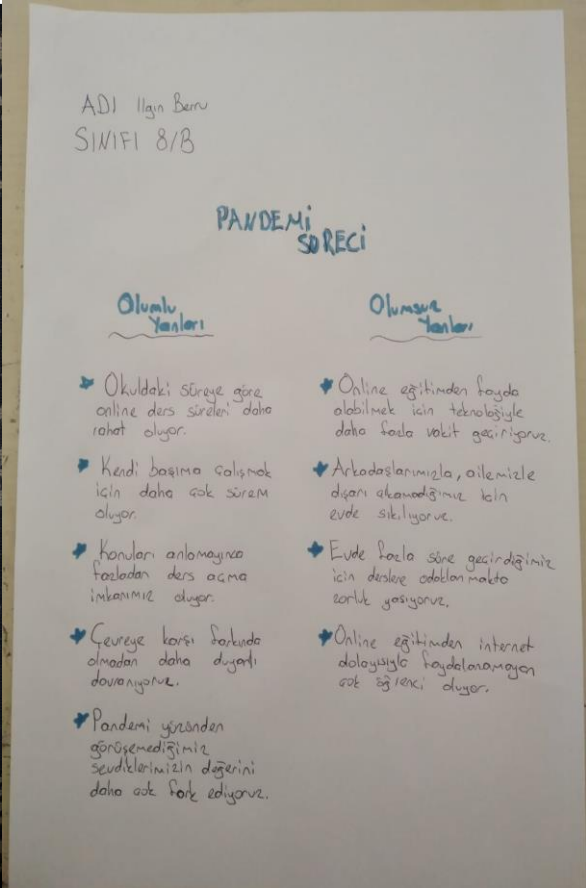 ADI Ilgın Berru
SINIFI 8/B
PANDEMİ
SÜRECİ
Olumlu
Yanları
★ Okuldaki süreye göre
online ders süreleri daha
rahat oluyor.
★ Kendi başıma çalışmak
için daha çok sürem
oluyor.
★ Konuları anlamayınca
fazladan ders açma
imkanımız oluyor.
★ Çevreye karşı farkında
olmadan daha duyarlı
davranıyoruz.
★ Pandemi yüzünden
görüşemediğimiz
sevdiklerimizin değerini
daha çok fark ediyoruz.
Olumsuz
Yanları
★ Online eğitimden fayda
alabilmek için teknolojiyle
daha fazla vakit geçiriyoruz.
★ Arkadaşlarımızla, ailemizle
dışarı çıkamadığımız için
evde sıkılıyoruz.
★ Evde fazla süre geçirdiğimiz
için derslere odaklanmakta
zorluk yaşıyoruz.
★ Online eğitimden internet
dolayısıyla faydalanamayan
çok öğrenci oluyor.